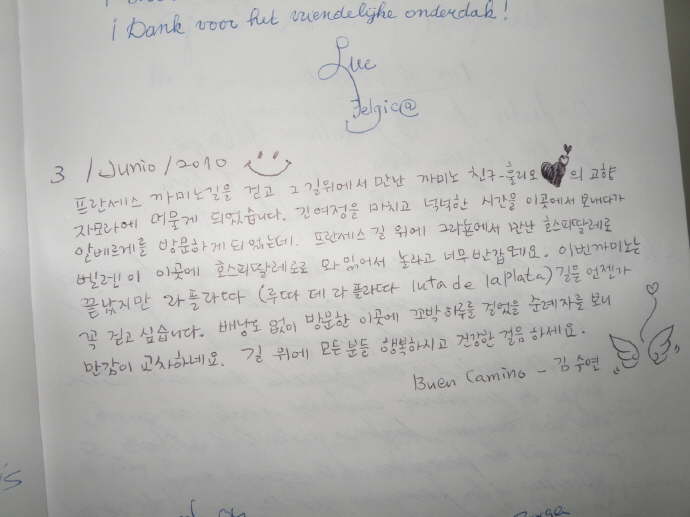 ¡ Dank voor het vriendelijke onderdak!
Luc
Belgic@
3 /Junio/2010
프란세스 까미노길을 걷고 그 길위에서 만난 까미노 친구-훌리오 의 고향
자모라에 머물게 되었습니다. 긴여정을 마치고 넉넉한 시간을 이곳에서 보내다가
알베르게를 방문하게 되었는데. 프란세스 길 위에 그라뇬에서 만난 호스피딸레로
벨렌이 이곳에 호스피딸레로로 와 있어서 놀라고 너무 반갑네요. 이번까미노는
끝났지만 라플라따 (루따 데 라 플라따 luta de laplata) 길을 언젠가
꼭 걷고 싶습니다. 배낭도 없이 방문한 이곳에 꼬박 하루를 걸었을 순례자를 보니
만감이 교차하네요. 길 위에 모든분들 행복하시고 건강한 걸음 하세요.
Buen Camino - 김수연